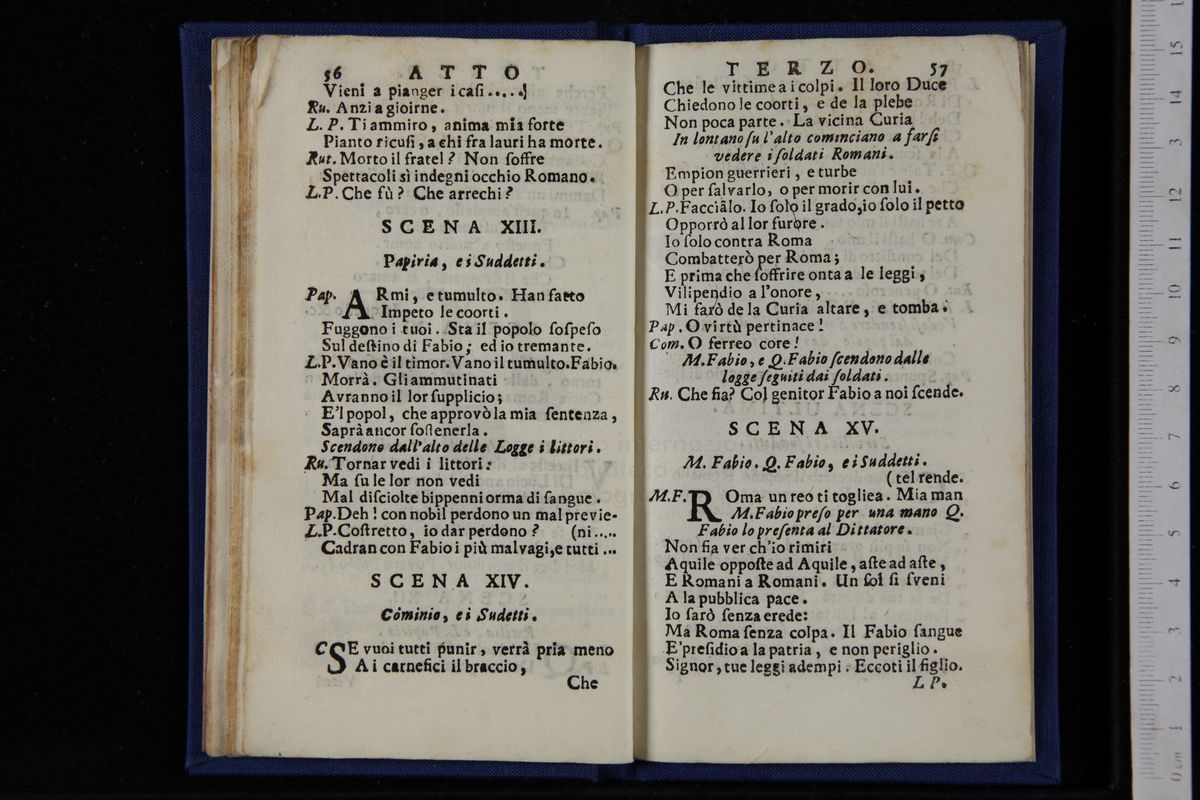 56 ATTO
Vieni a pianger i casi.....
Ru. Anzi a gioirne.
L. P. Ti ammiro, anima mia forte
Pianto ricusi, a chi fra lauri ha morte.
Rut. Morto il fratel? Non soffre
Spettacoli sì indegni occhio Romano.
L.P. Che fù? Che arrechi?
SCENA XIII.
Papiria, e i Suddetti.
Pap. ARmi, e tumulto. Han fatto
Impeto le coorti.
Fuggono i tuoi. Sta il popolo sospeso
Sul destino di Fabio; ed io tremante.
L.P. Vano è il timor. Vano il tumulto. Fabio.
Morrà. Gli ammutinati
Avranno il lor supplicio;
E'l popol, che approvò la mia sentenza,
Saprà ancor sostenerla.
Scendono dall'alto delle Logge i littori.
Ru. Tornar vedi i littori:
Ma su le lor non vedi
Mal disciolte bippenni orma di sangue.
Pap. Deh! con nobil perdono un mal previe-
L.P. Costretto, io dar perdono? (ni....
Cadran con Fabio i più malvagi, e tutti...
SCENA XIV.
Cóminio, e i Sudetti.
C SE vuoi tutti punir, verrà pria meno
A i carnefici il braccio,
Che
TERZO. 57
Che le vittime a i colpi. Il loro Duce
Chiedono le coorti, e de la plebe
Non poca parte. La vicina Curia
In lontano su l'alto cominciano a farsi
vedere i soldati Romani.
Empion guerrieri, e turbe
O per salvarlo, o per morir con lui.
L.P. Facciàlo. Io solo il grado, io solo il petto
Opporrò al lor furore.
Io solo contra Roma
Combatterò per Roma;
E prima che soffrire onta a le leggi,
Vilipendio a l'onore,
Mi farò de la Curia altare, e tomba.
Pap. O virtù pertinace!
Com. O ferreo core!
M. Fabio, e Q. Fabio scendono dalle
logge seguiti dai soldati.
Ru. Che fia? Col genitor Fabio a noi scende.
SCENA XV.
M. Fabio. Q. Fabio, e i Suddetti.
(tel rende.
M.F. ROma un reo ti togliea. Mia man
M. Fabio preso per una mano Q.
Fabio lo presenta al Dittatore.
Non fia ver ch'io rimiri
Aquile opposte ad Aquile, aste ad aste,
E Romani a Romani. Un sol si sveni
A la pubblica pace.
Io sarò senza erede:
Ma Roma senza colpa. Il Fabio sangue
E' presidio a la patria, e non periglio.
Signor, tue leggi adempi. Eccoti il figlio.
L P.